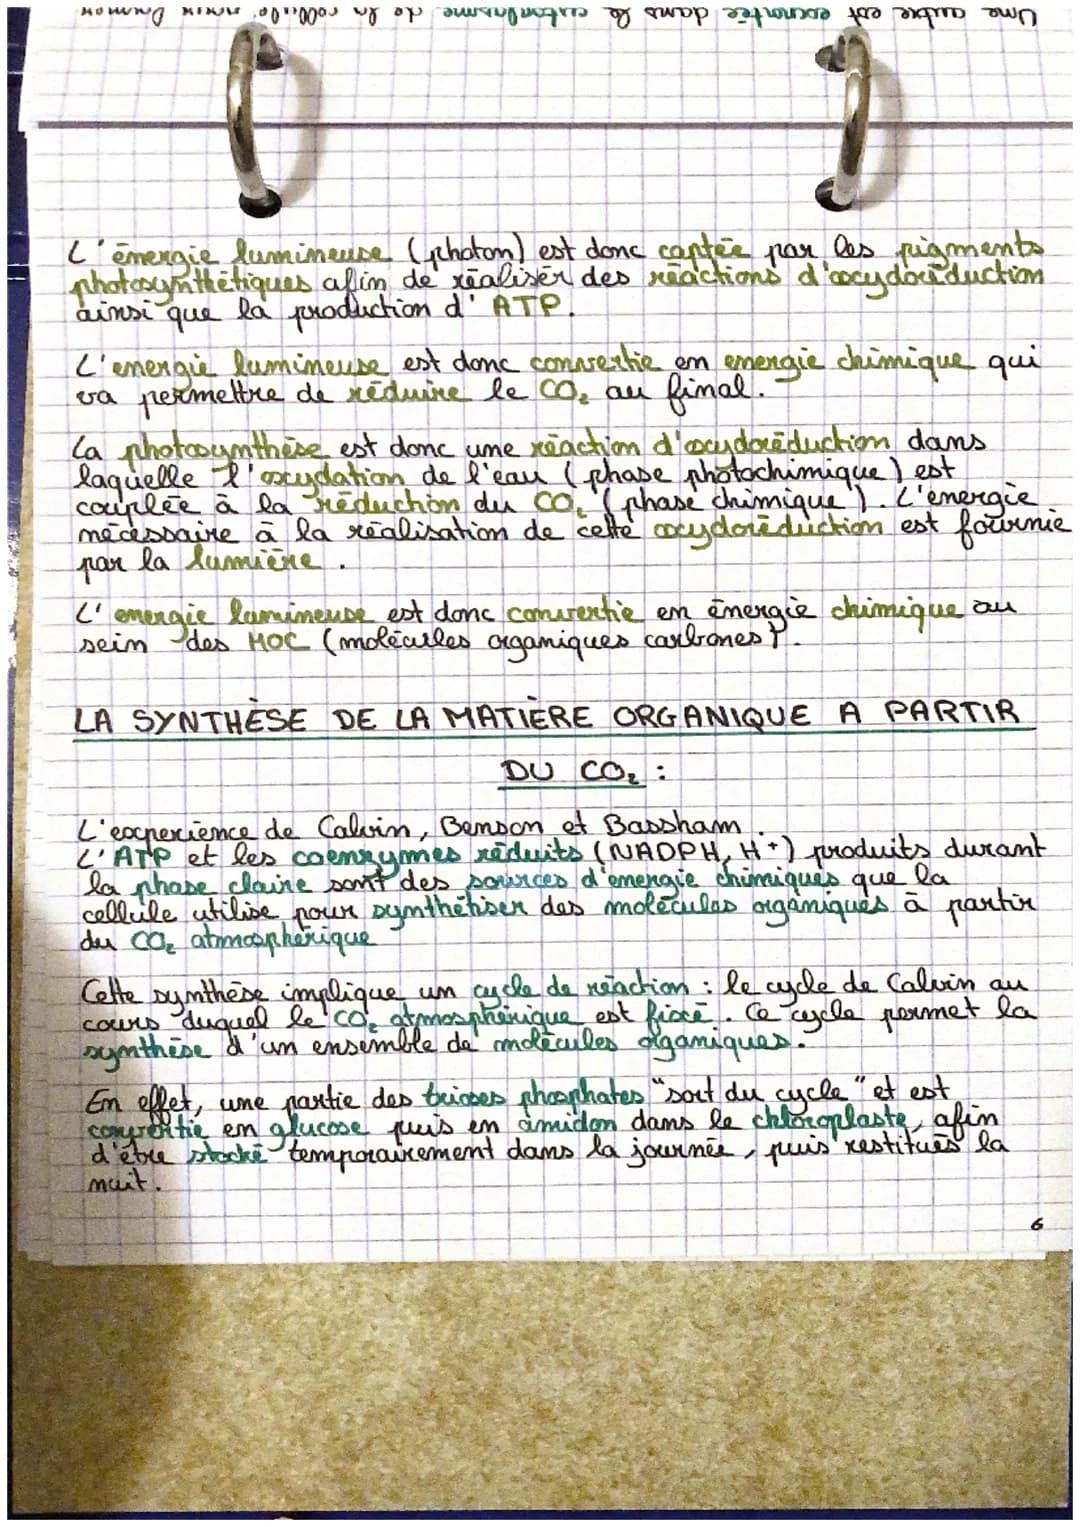 Une autre est exportée dans le cytoplasme de la cellule, pour
L'énergie lumineuse (photon) est donc captée par les pigments
photosynthétiques afin de réaliser des réactions d'oxydoréduction
ainsi que la production d'ATP.
L'energie lumineuse est donc convertie en energie chimique qui
va permettre de réduire le CO₂ au final.
La photosynthèse est donc une réaction d'oxydoréduction dans
laquelle l'oxydation de l'eau (phase photochimique) est
couplée à la réduction du CO₂ (phase chimique). L'energie
nécessaire à la réalisation de cette oxydoréduction est fournie
par la lumière.
L'energie lumineuse est donc convertie en énergie chimique au
sein des MOC (molécules organiques carbones).
LA SYNTHÈSE DE LA MATIÈRE ORGANIQUE A PARTIR
DU CO₂ :
L'experience de Calvin, Benson et Bassham.
L'ATP et les coenzymes réduits (NADPH, H+) produits durant
la phase claire sont des sources d'energie chimiques que la
cellule utilise pour synthétiser des molécules organiques à partir
du CO₂ atmosphérique
Cette synthèse implique un cycle de réaction : le cycle de Calvin au
cours duquel le CO₂ atmosphérique est fixé. Ce cycle permet la
synthèse d'un ensemble de molécules organiques.
En effet, une partie des trioses phosphates "sort du cycle" et est
convertie en glucose puis en amidon dans le chloroplaste, afin
d'être stocké temporairement dans la journée, puis restitués la
nuit.
6